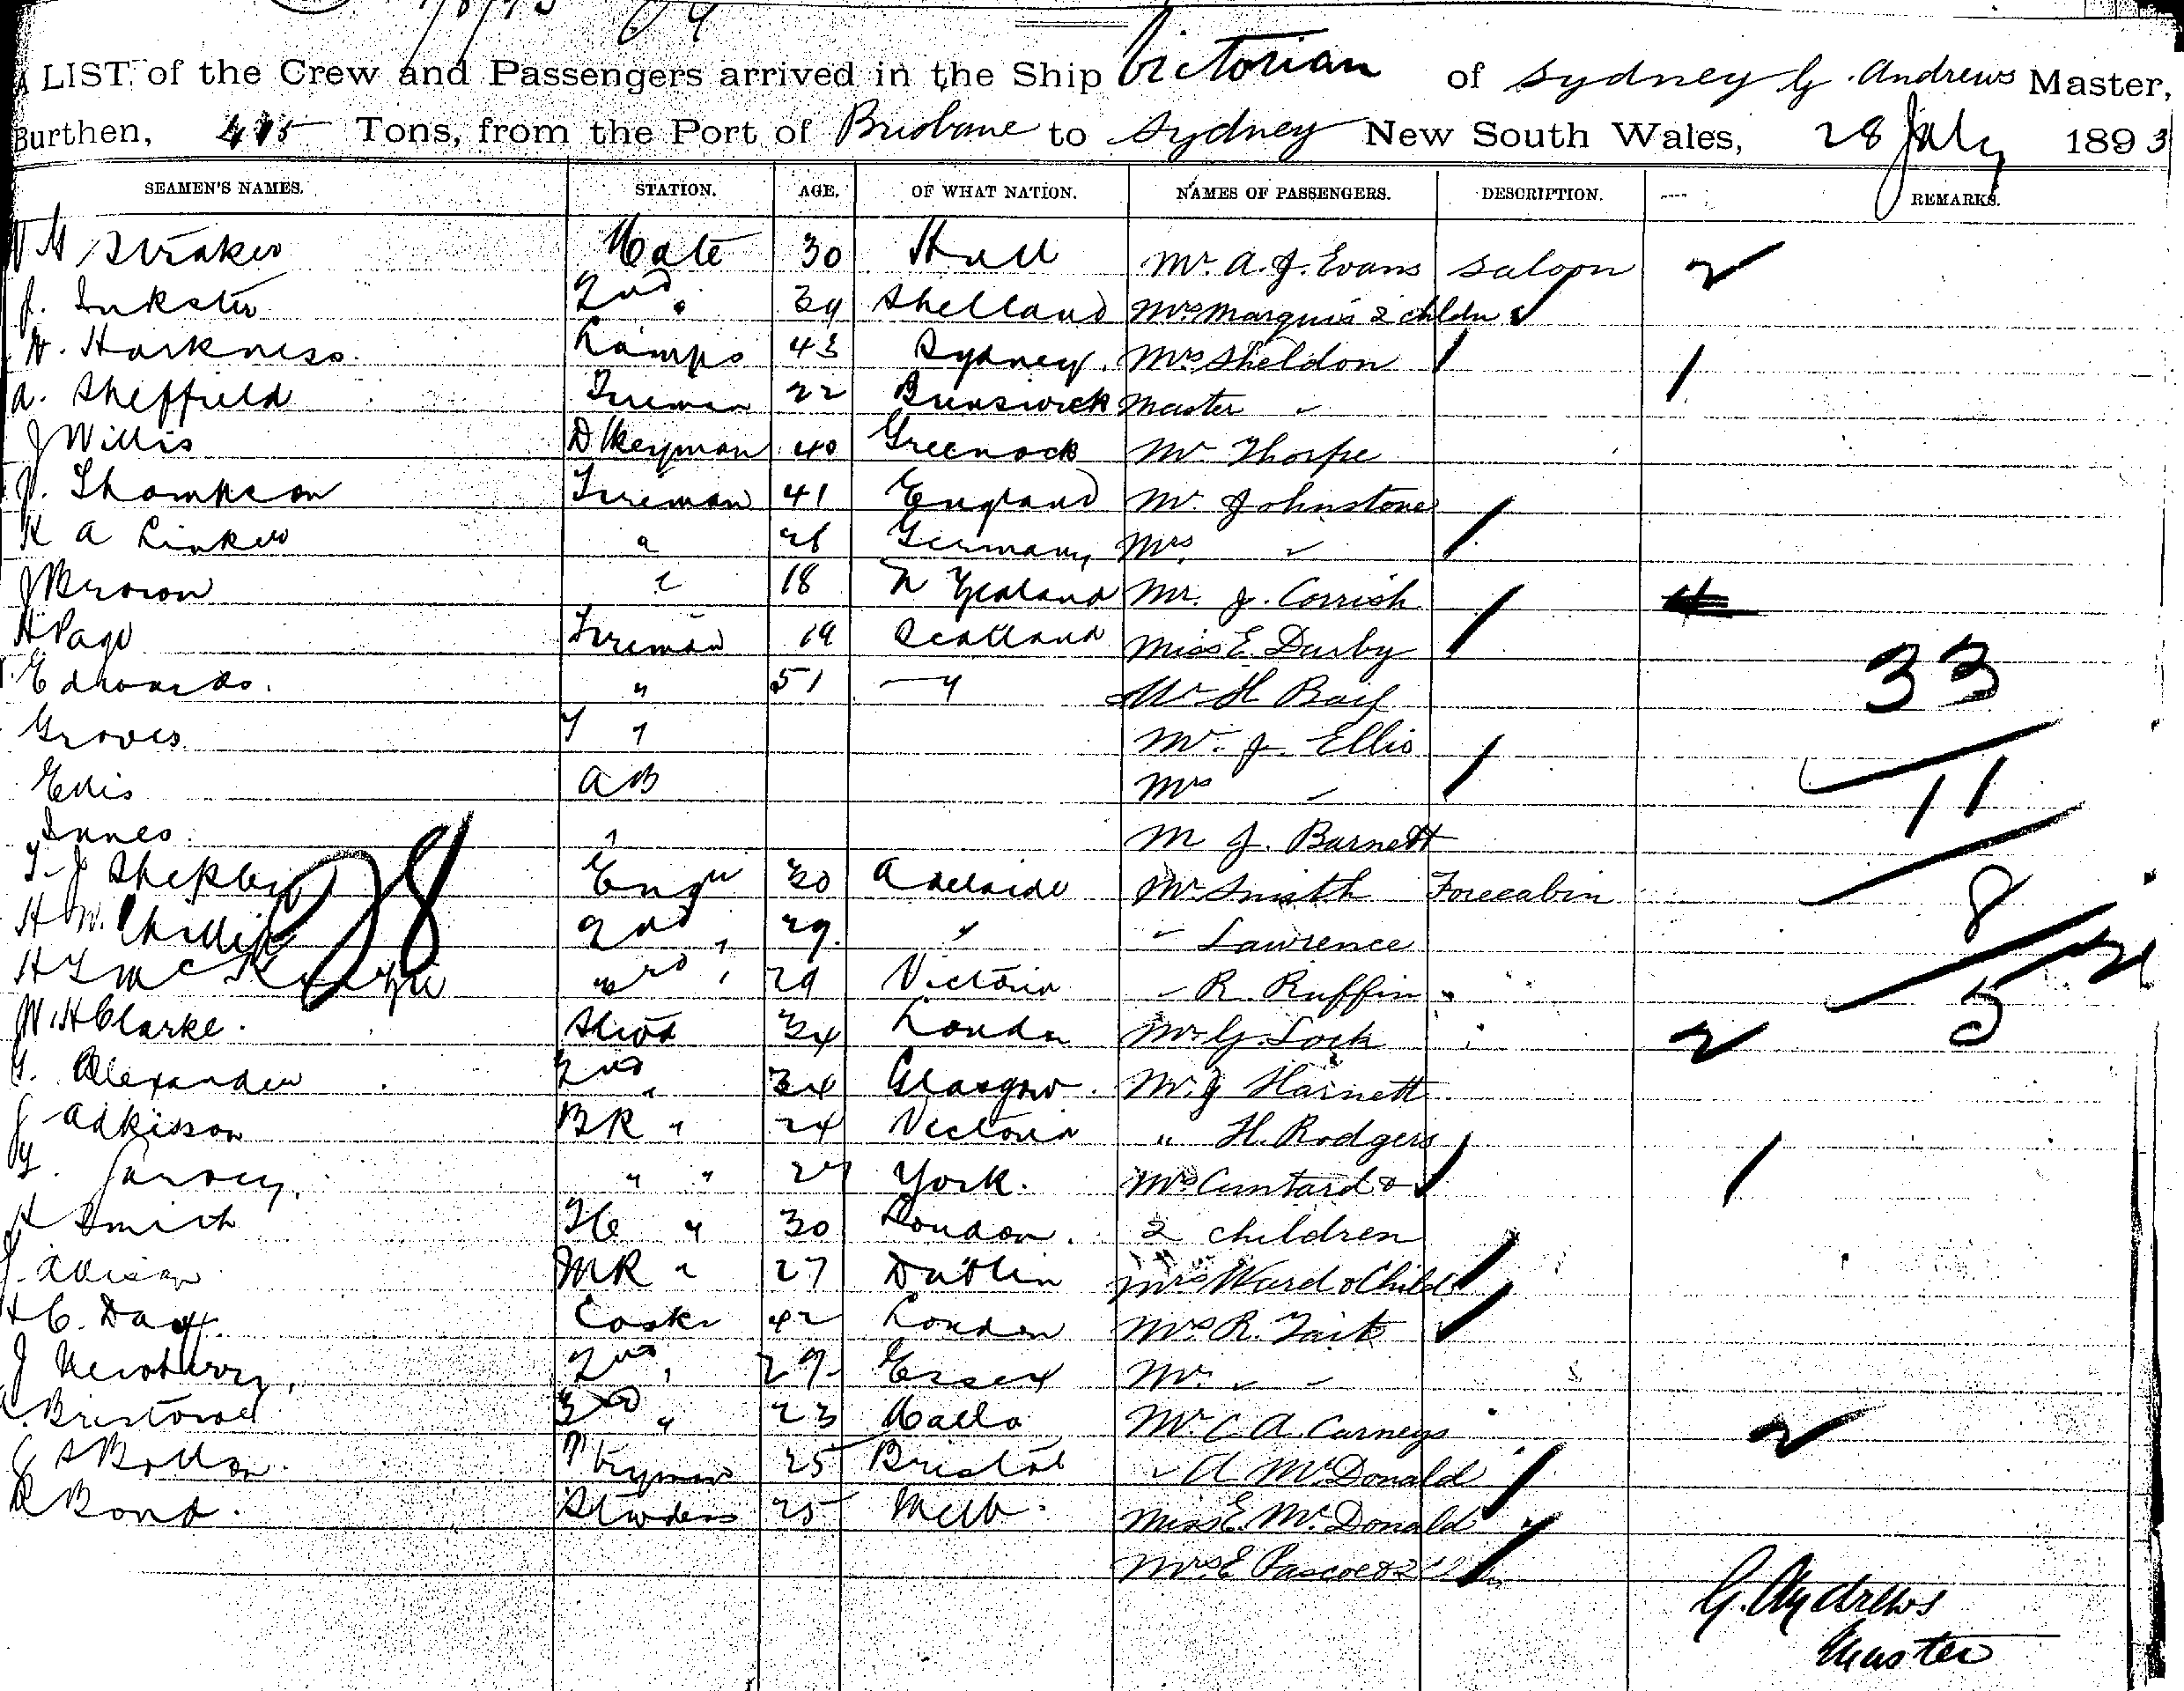 A LIST of the Crew and Passengers arrived in the Ship Victorian of Sydney G. Andrews Master,
Burthen, Tons, from the Port of Brisbane to Sydney New South Wales, 28 July 1893
SEAMEN'S NAMES. STATION. AGE. OF WHAT NATION. NAMES OF PASSENGERS. DESCRIPTION. REMARKS.
Straker Mate 30 Hull Mr. A. J. Evans Saloon 2
J. Inkster 2nd " Mrs Marquis 2 childn
Harkness Lamps 43 Sydney. Mrs Sheldon 1
A. Sheffield Fireman 22 Brunswick Master "
J Willis Dkeyman 40 Greenock Mr Thorpe
J. Thompson Fireman 41 England Mr. Johnstone
K A Linker " Germany Mrs "
J Brown " 18 N Zealand Mr. J. Corrish
H Page Fireman 19 Scotland Miss E. Darby
Edwards. " 51 " Mr H 33
Groves " " Mr. J. Ellis
Ellis AB Mrs " 11
Innes " M J. Barnett
T. J. 30 Adelaide Mr Smith Forecabin 8
H W. Phillips 2nd " 29. " " Lawrence
H 3rd " 29 Victoria " R. Ruffin "
W. H Clarke. Stwd 34 London Mr G. Lock " 2 5
G. Alexander 2nd " 34 Glasgow. Mr. J Harnett
J Adkisson BR " 24 Victoria " H. Rodgers
G. " " York. Mrs &
H Smith " 30 London. 2 children
J. MR " 27 Dublin Mrs Ward & Child
H C. Day. Cook 42 London Mrs R. Tait
J Newberry, 2nd " 29 Essex Mr. " "
Bristowe 3rd " 23 Mr. C. A. Carneys 2
25 Bristol " A McDonald
R Bond. Stwdess 25 Melb. Miss E. McDonald
Mrs E Pascoe & 2
G. Andrews
Master